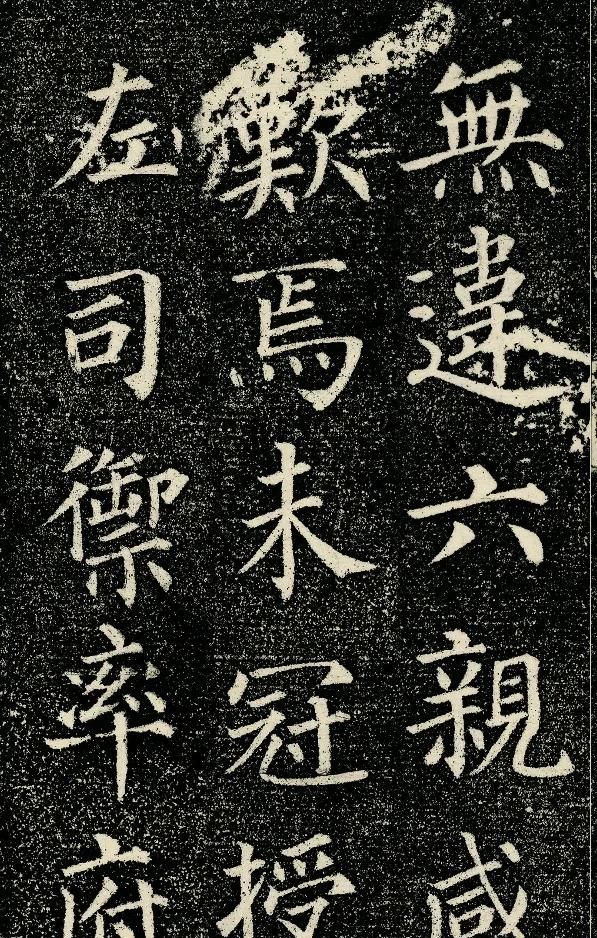 無違六親咸
歎焉未冠授
左司禦率府